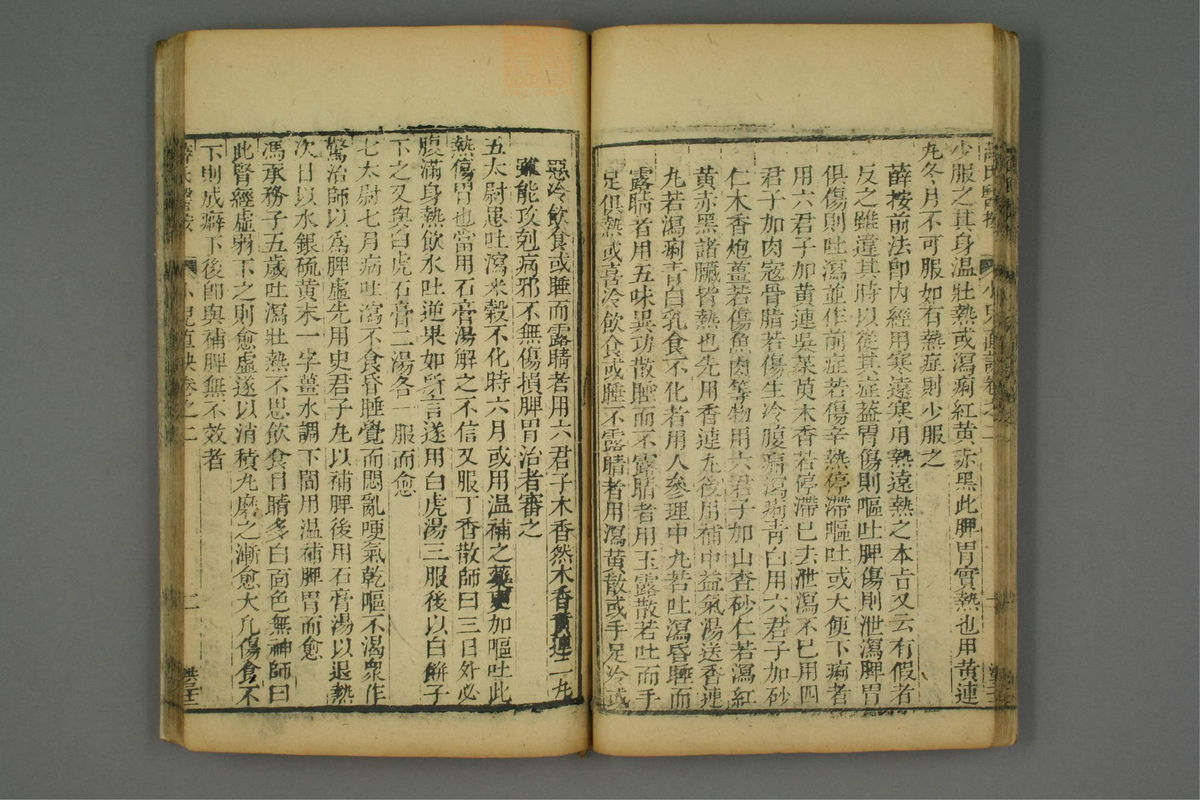 少服之其身温壯熱或瀉痢紅黄赤黑此脾胃實熱也用黄連
丸冬月不可服如有熱症則少服之
薛按前法卽内經用寒遠寒用熱遠熱之本旨又云有假者
反之雖違其時以從其症蓋胃傷則嘔吐脾傷則泄瀉脾胃
俱傷則吐瀉並作前症若傷辛熱停滯嘔吐或大便下痢者
用六君子加黄連吳茱萸木香若停滯已去泄瀉不已用四
君子加肉寇骨脂若傷生冷腹痛瀉痢青白用六君子加砂
仁木香炮薑若傷魚肉等物用六君子加山查砂仁若瀉紅
黄赤黑諸臟皆熱也先用香連丸後用補中益氣湯送香連
九若瀉痢青白乳食不化者用人參理中九若吐瀉昏睡而
露睛者用五味異功散睡而不露睛者用玉露散若吐而手
足俱熱或喜冷飲食或睡不露睛者用瀉黄散或手足冷或
惡冷飲食或睡而露睛者用六君子木香然木香黄連二九
雖能攻剋病邪不無傷損脾胃治者審之
五太尉患吐瀉米穀不化時六月或用温補之藥更加嘔吐此
熱傷胃也當用石膏湯解之不信又服丁香散師曰三日外必
腹滿身熱飲水吐逆果如所言遂用白虎湯三服後以白餅子
下之又與白虎石膏二湯各一服而愈
七太尉七月病吐瀉不食昏睡覺而悶亂哽氣乾嘔不渴衆作
驚治師以爲脾虛先用史君子九以補脾後用石膏湯以退熱
次日以水銀硫黄末一字薑水調下間用温補脾胃而愈
馮承務子五歲吐瀉壯熱不思飲食目睛多白面色無神師曰
此腎經虛弱下之則愈虛遂以消積九磨之漸愈大凡傷食不
下則成癖下後卽與補脾無不效者
薛氏醫按
小兒直訣卷之二
二